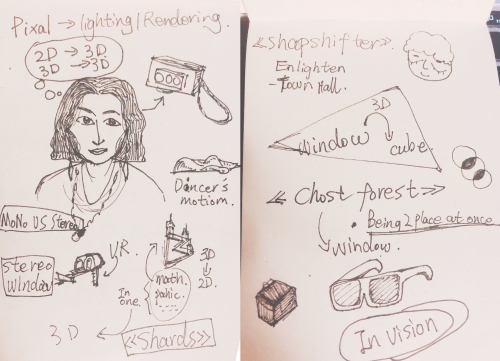 Pixal → lighting/Rendering.
2D → 3D
3D → 3D
600T
Dancer's
motiom.
MoNo US Stereo
V.R.
stereo
window
In
one.
math.
panic.
3D
↓
2D.
3D ←
≪Shards≫
≪Shapshifter≫
Enlighten
-Town Hall.
3D
window
cube.
≪Chost forest≫
• Being 2 place at once
window.
In vision